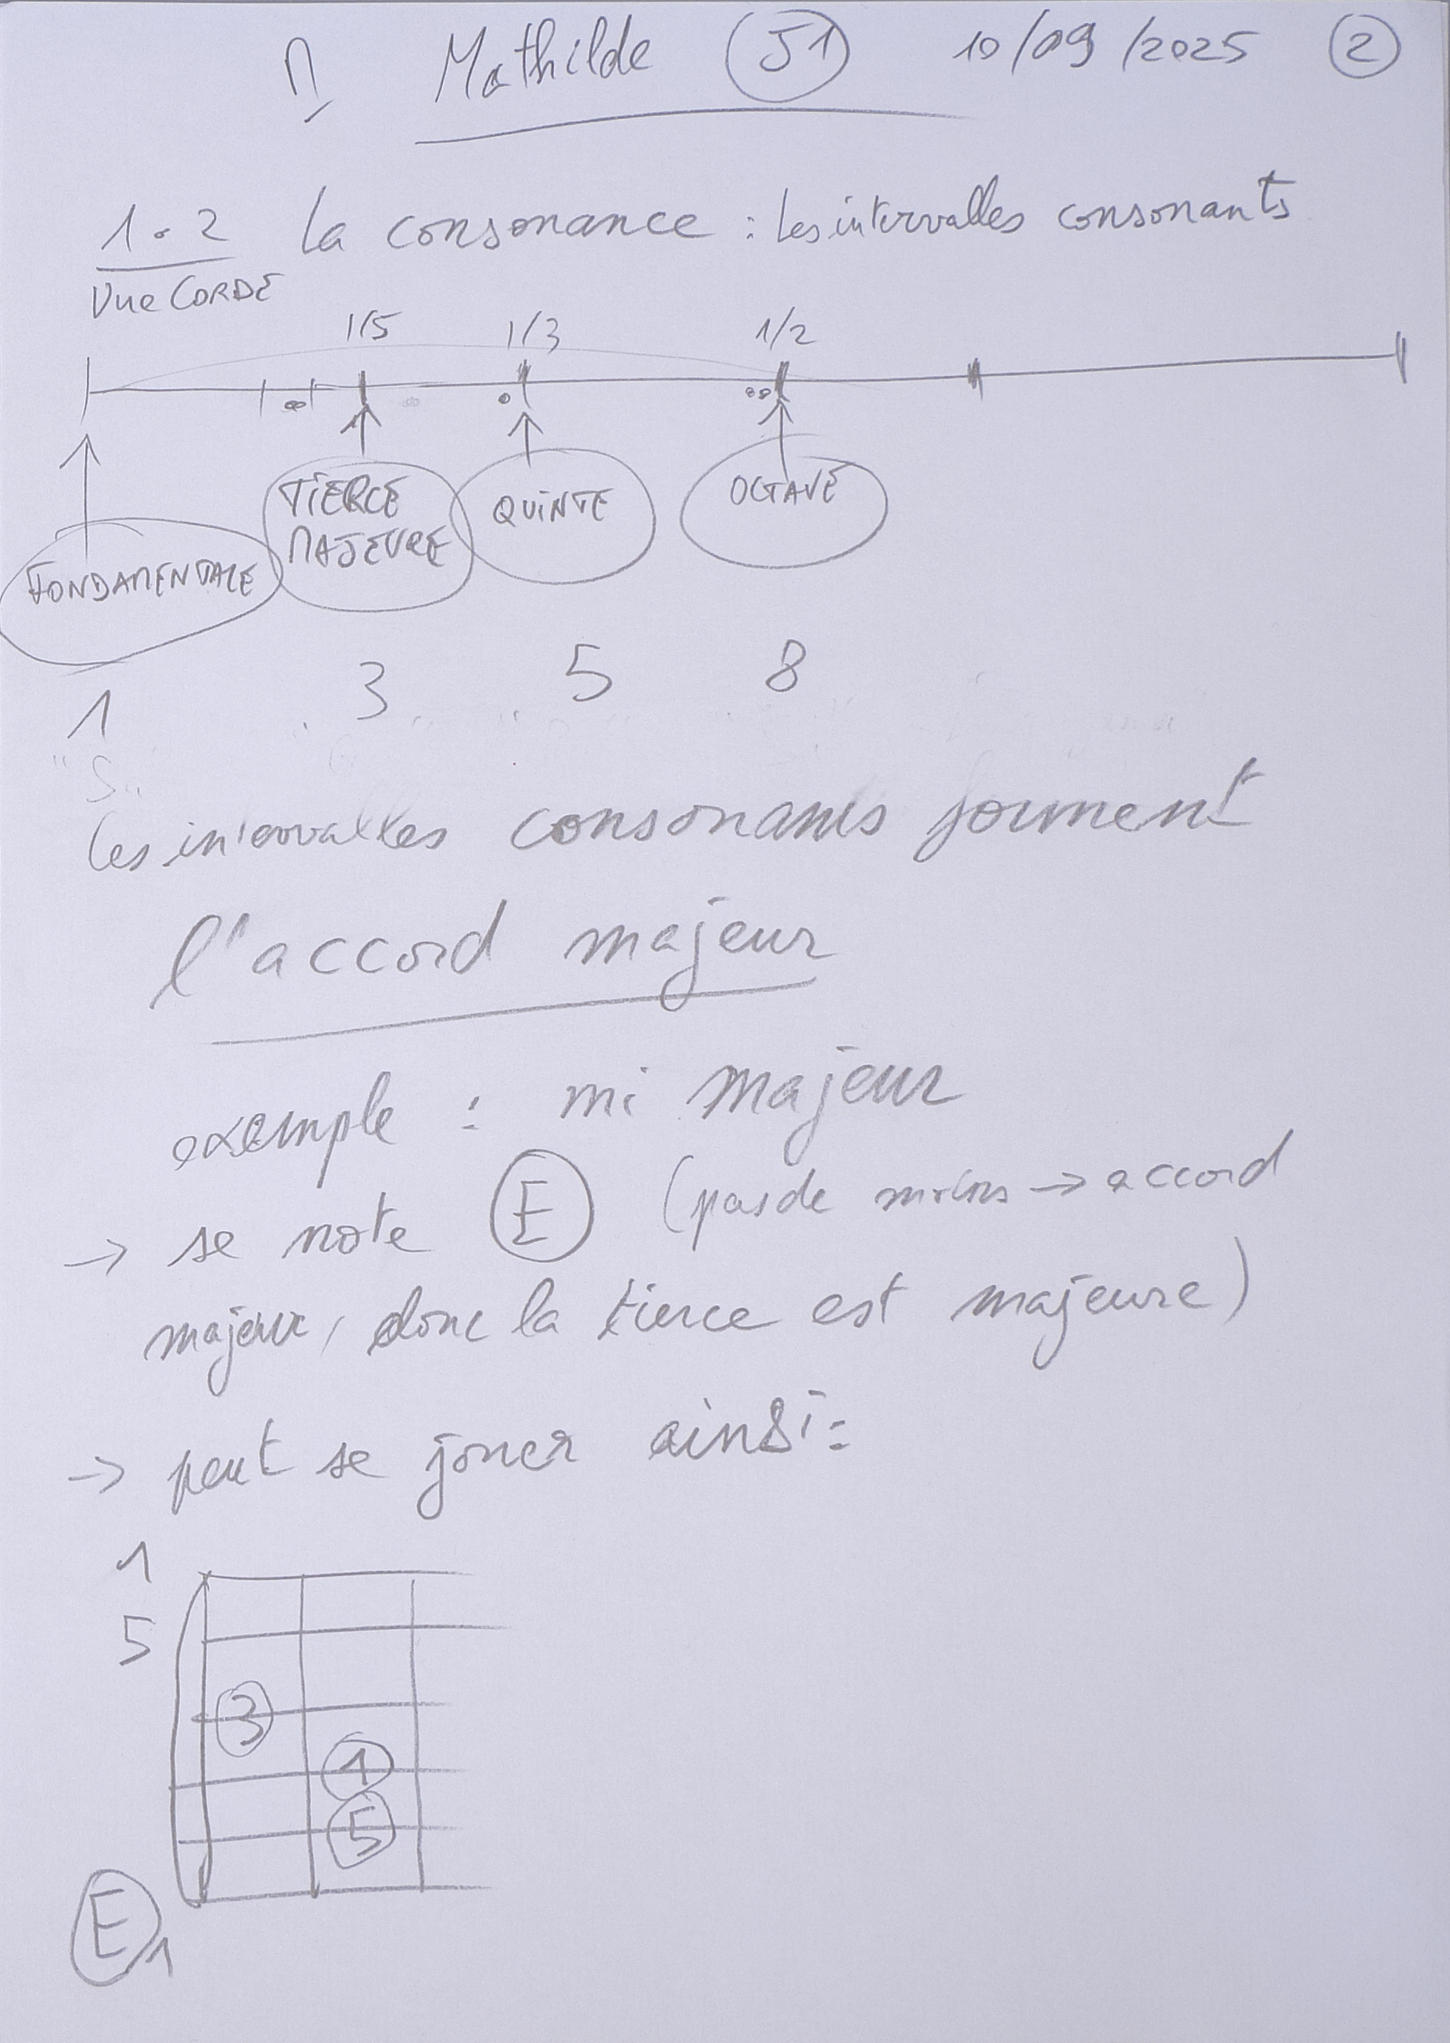 Mathilde J1 10/09/2025 2
1.2 la consonance : les intervalles consonants
Vue CORDE
1/5 1/3 1/2
FONDAMENTALE TIERCE MAJEURE QUINTE OCTAVE
1 3 5 8
les intervalles consonants forment
l'accord majeur
exemple : mi majeur
→ se note E (pas de moins → accord
majeur, donc la tierce est majeure)
→ peut se jouer ainsi :
1
5
3
1
5
E 1